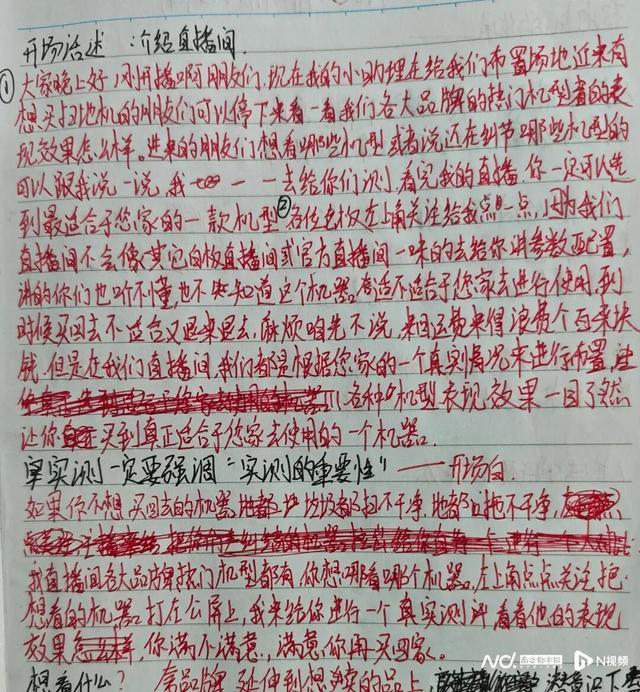 开场话述：介绍直播间.
① 大家晚上好，刚开播啊朋友们，现在我的小助理在给我们布置场地近来有
想买扫地机的朋友们可以停下来看一看我们各大品牌的热门机型者的表
现效果怎么样。进来的朋友们想看哪些机型或者说还在纠节哪些机型的
可以跟我说一说，我一一去给你们测，看完我的直播，你一定可以选
到最适合于您家的一款机型②各位老板左上角关注给我点一点，因为我们
直播间不会像其它白板直播间或官方直播间一味的去给你讲参数配置，
讲的你们也听不懂，也不知道这个机器合适不适合于您家去进行使用，到
时候买回去不适合又退来退去，麻烦咱先不说，来回运费来得浪费个百来块
钱，但是在我们直播间，我们都是根据您家的一个真实情况来进行布置，
各种机型表现效果一目了然
让你买到真正适合于您家去使用的一个机器.
实测一定要强调“实测的重要性”——开场白.
如果你不想买回去的机器，地都 垃圾都扫不干净，地都拖不干净，
我直播间各大品牌热门机型都有，你想哪看哪个机器，左上角点点关注把
想看的机器打在公屏上，我来给你进行一个真实测评，看看他的表现
效果怎么样，你满不满意，满意你再买回家。
想看什么？ 品牌延伸到想要的品上，
南方都市报
N视频